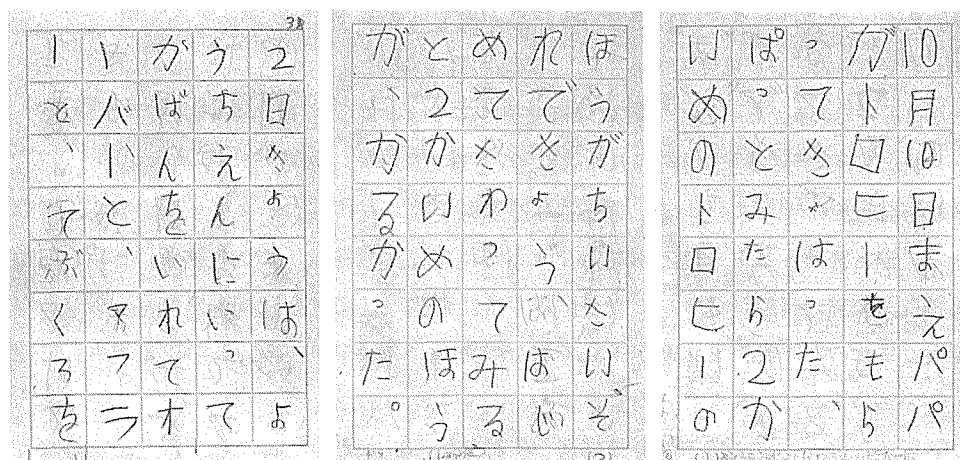 10月10日まえパパ
がトロヒーをもら
ってきゃはった、
ぱっとみたら2か
いめのトロヒーの
ほうがちいさいぞ
れできょうはじ
めてさわってみる
と2かいめのほう
が、かるかった。
38
2日きょうは、よ
うちえんにいって
がばんをいれてオ
ーバーと、マフラ
ーと、てぶくろを